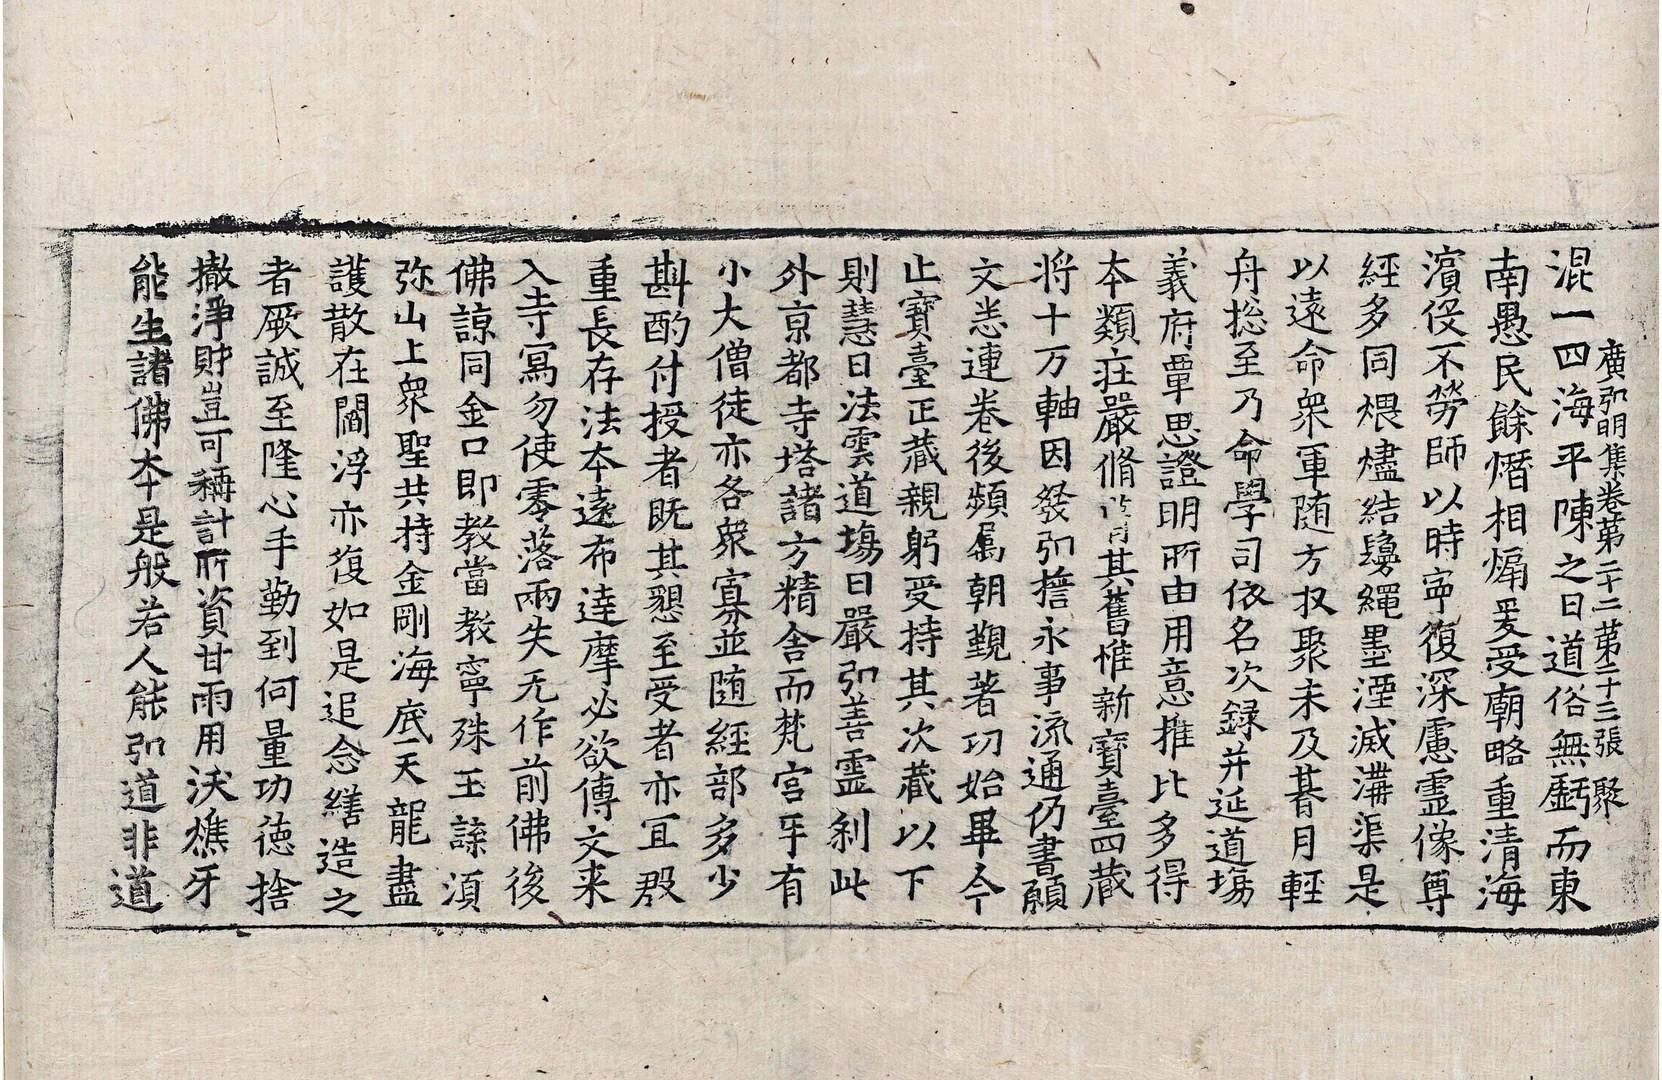 廣弘明集卷第二十二 第二十三張 聚
混一四海平陳之日道俗無虧而東
南愚民餘熸相煽爰受朝略重清海
濱役不勞師以時寧復深慮靈像尊
經多同煨燼結鬘繩墨湮滅溝渠是
以遠命衆軍随方収聚未及朞月輕
舟揔至乃命學司依名次録并延道場
義府覃思證明所由用意推比多得
本類莊嚴脩其舊惟新寶臺四藏
将十万軸因發弘誓永事流通仍書願
文悉連卷後頻屬朝覲著功始畢今
止寶臺正藏親躬受持其次藏以下
則慧日法雲道場日嚴弘善靈刹此
外京都寺塔諸方精舍而梵宮牙有
小大僧徒亦各衆寡並随經部多少
斟酌付授者既其懇至受者亦冝殷
重長存法本遠布達摩必欲傳文来
入寺寫勿使零落兩失无作前佛後
佛諒同金口即教當教寧殊玉諜湏
弥山上衆聖共持金剛海底天龍盡
護散在閻浮亦復如是追念繕造之
者厥誠至隆心手勤到何量功德捨
撤淨財豈可稱計所資甘雨用沃燋牙
能生諸佛本是般若人能弘道非道